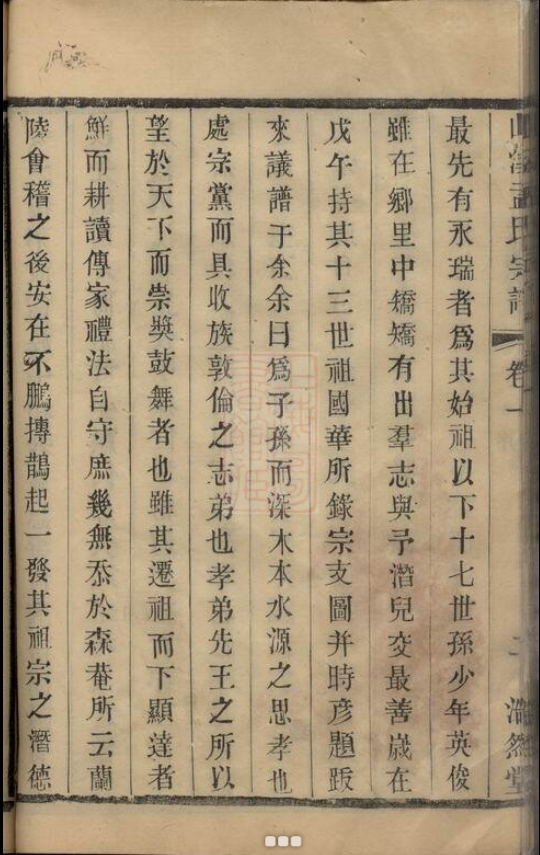 孟氏宗譜 卷一 浩然堂
最先有永瑞者爲其始祖以下十七世孫少年英俊
雖在鄉里中矯矯有出羣志與予潛兒交最善歲在
戊午持其十三世祖國華所錄宗支圖并時彥題跋
來議譜于余余曰爲子孫而深木本水源之思孝也
處宗黨而具收族敦倫之志弟也孝弟先王之所以
望於天下而崇獎鼓舞者也雖其遷祖而下顯達者
鮮而耕讀傳家禮法自守庶幾無忝於森菴所云蘭
陵會稽之後安在不鵬摶鵲起一發其祖宗之潛德